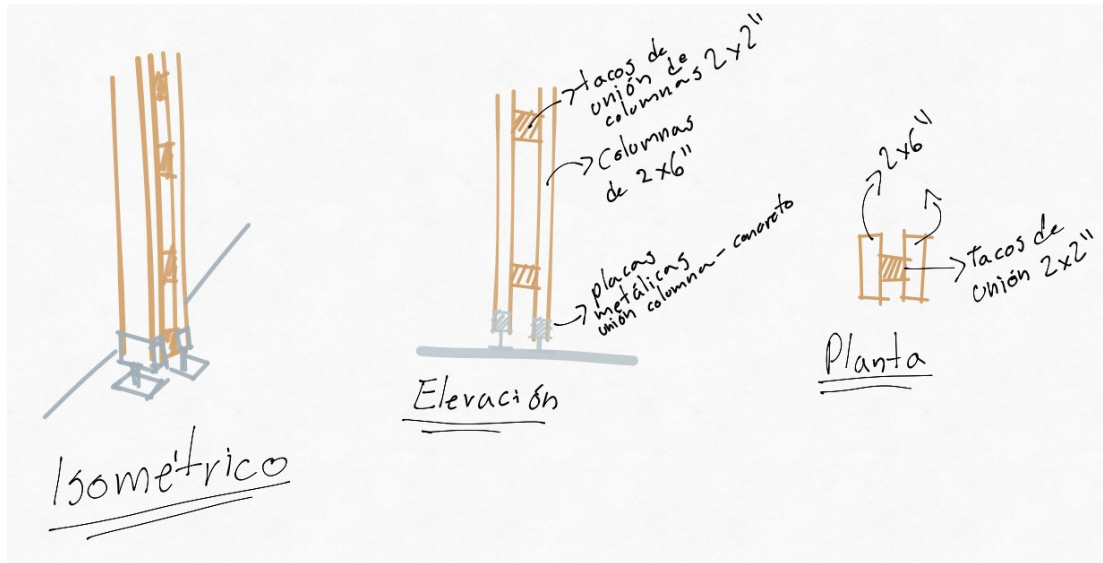 Isométrico
tacos de
unión de
columnas 2x2"
Columnas
de 2x6"
placas
metálicas
unión columna - concreto
Elevación
2x6"
tacos de
unión 2x2"
Planta